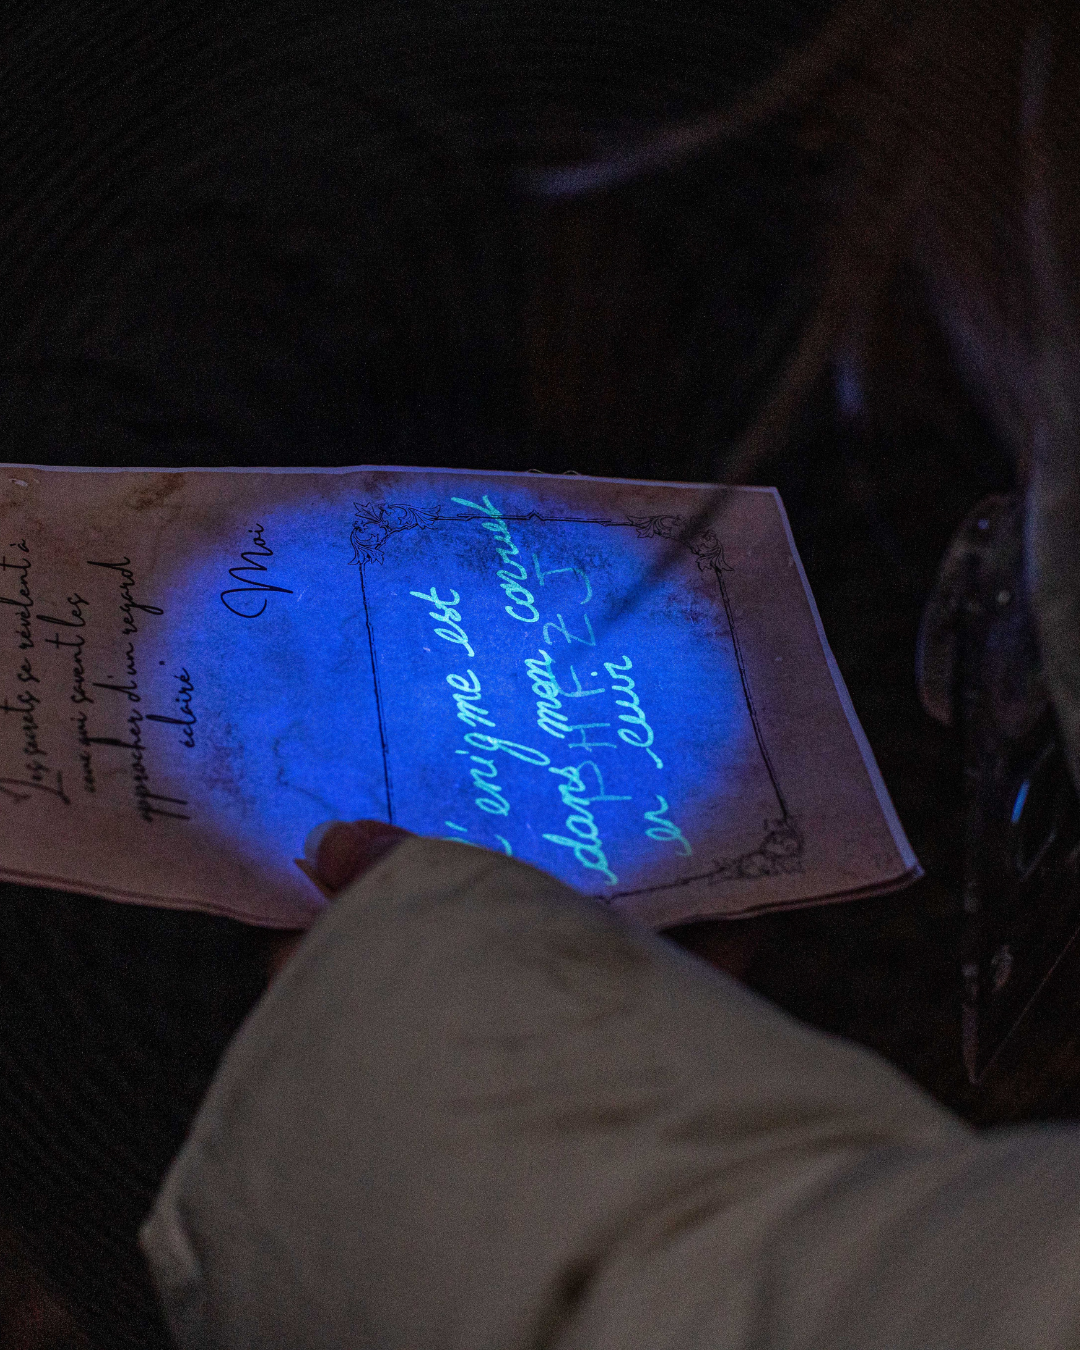 Les secrets se révèlent à
ceux qui savent les
approcher d'un regard
éclairé
Moi
L'enigme est
dans mon carnet
H F Z J
en cuir